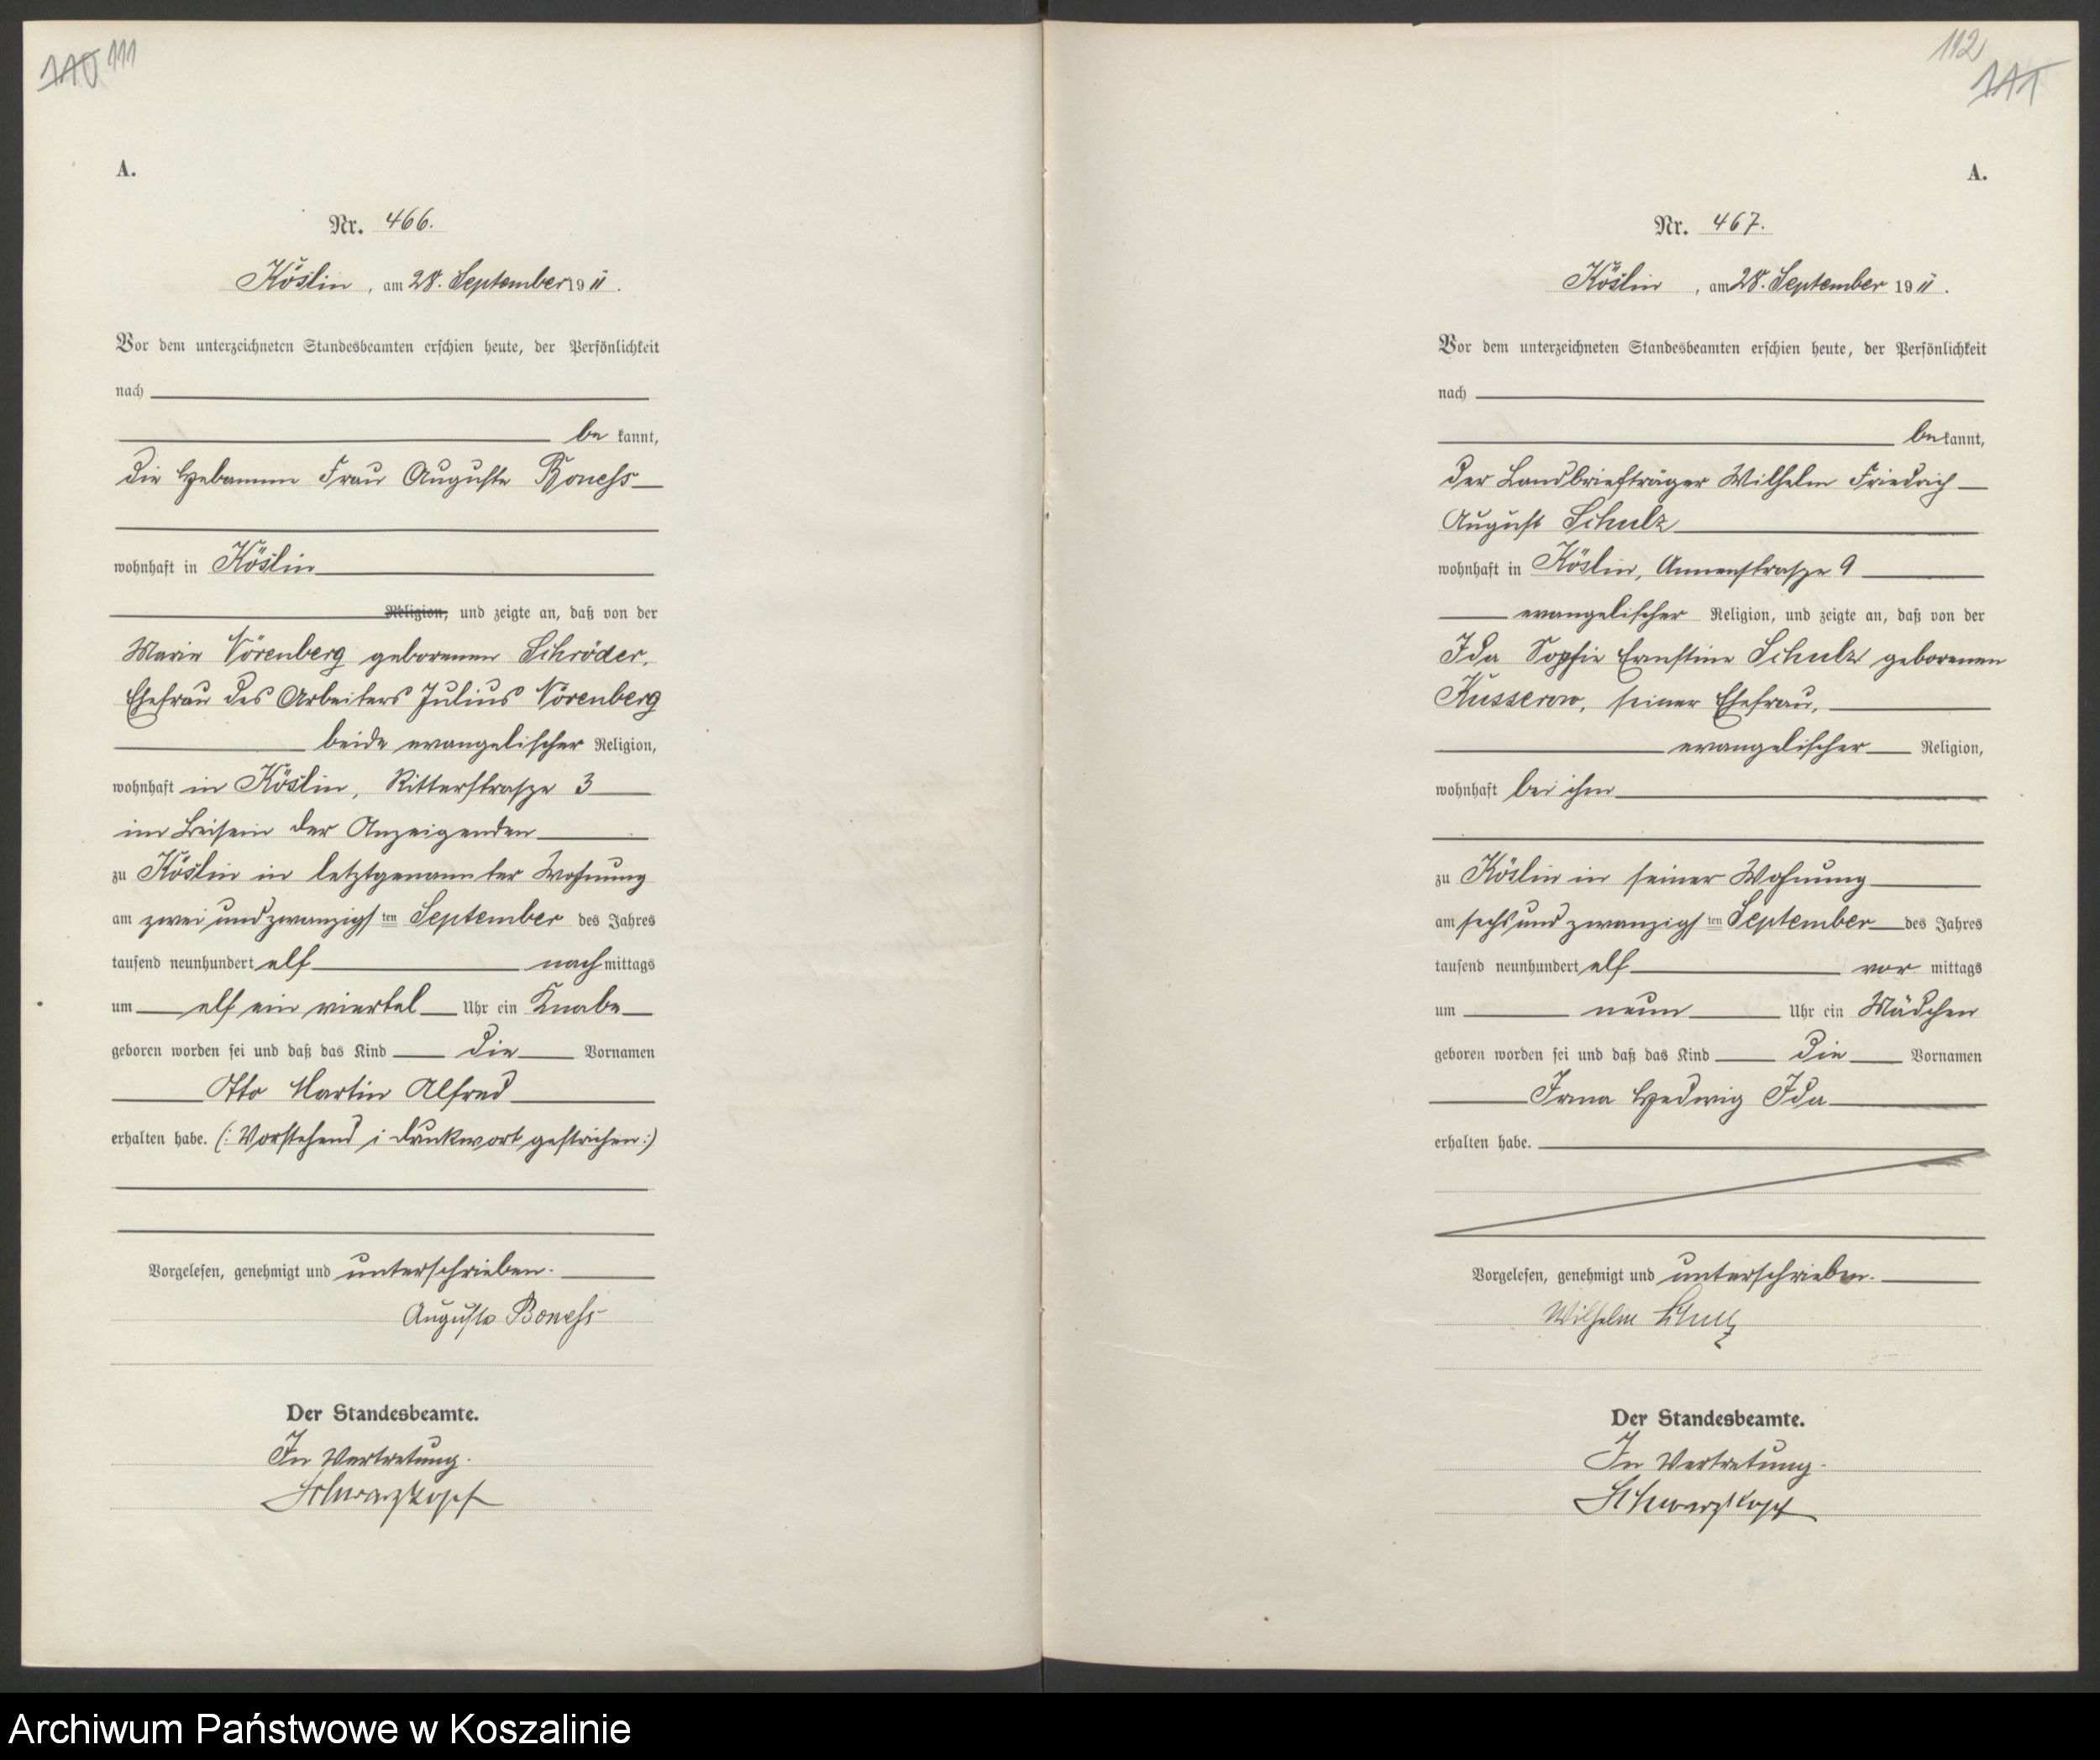 110 111
A.
Nr. 466.
Köslin, am 28. September 1911.
Vor dem unterzeichneten Standesbeamten erschien heute, der Persönlichkeit
nach
be kannt,
die Hebamme Frau Auguste Boness
wohnhaft in Köslin
Religion, und zeigte an, daß von der
Marie Nörenberg geborenen Schröder,
Ehefrau des Arbeiters Julius Nörenberg
beide evangelischer Religion,
wohnhaft in Köslin, Ritterstrasze 3
im Beisein der Anzeigenden
zu Köslin in letztgenannter Wohnung
am zwei und zwanzigsten September des Jahres
tausend neunhundert elf nachmittags
um elf ein viertel Uhr ein Knabe
geboren worden sei und daß das Kind die Vornamen
Otto Martin Alfred
erhalten habe. (: Vorstehend 1 Druckwort gestrichen :)
Vorgelesen, genehmigt und unterschrieben.
Auguste Boness
Der Standesbeamte.
In Vertretung.
Schwarzkopf
112
111
A.
Nr. 467.
Köslin, am 28. September 1911.
Vor dem unterzeichneten Standesbeamten erschien heute, der Persönlichkeit
nach
be kannt,
der Landbriefträger Wilhelm Friedrich
August Schulz
wohnhaft in Köslin, Annenstrasze 9
evangelischer Religion, und zeigte an, daß von der
Ida Sophie Ernstine Schulz geborenen
Kusserow, seiner Ehefrau,
evangelischer Religion,
wohnhaft bei ihm
zu Köslin in seiner Wohnung
am sechs und zwanzigsten September des Jahres
tausend neunhundert elf vor mittags
um neun Uhr ein Mädchen
geboren worden sei und daß das Kind die Vornamen
Irma Hedwig Ida
erhalten habe.
Vorgelesen, genehmigt und unterschrieben.
Wilhelm Schulz
Der Standesbeamte.
In Vertretung.
Schwarzkopf
Archiwum Państwowe w Koszalinie